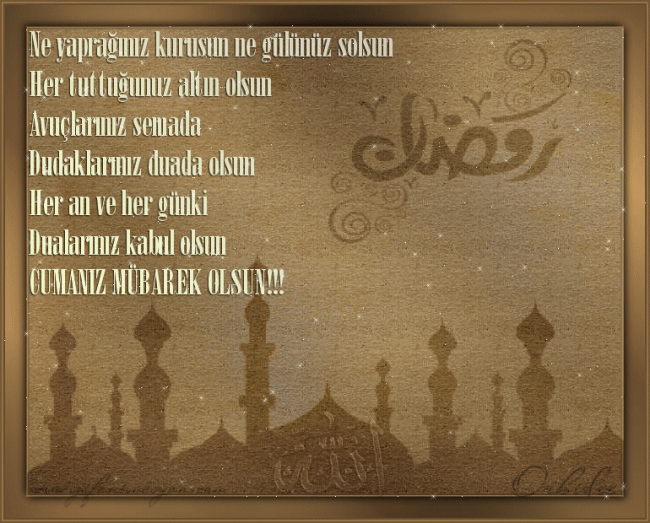 Ne yaprağınız kurusun ne gülünüz solsun
Her tuttuğunuz altın olsun
Avuçlarınız semada
Dudaklarınız duada olsun
Her an ve her günki
Dualarınız kabul olsun
CUMANIZ MÜBAREK OLSUN!!!
رمضان
الله